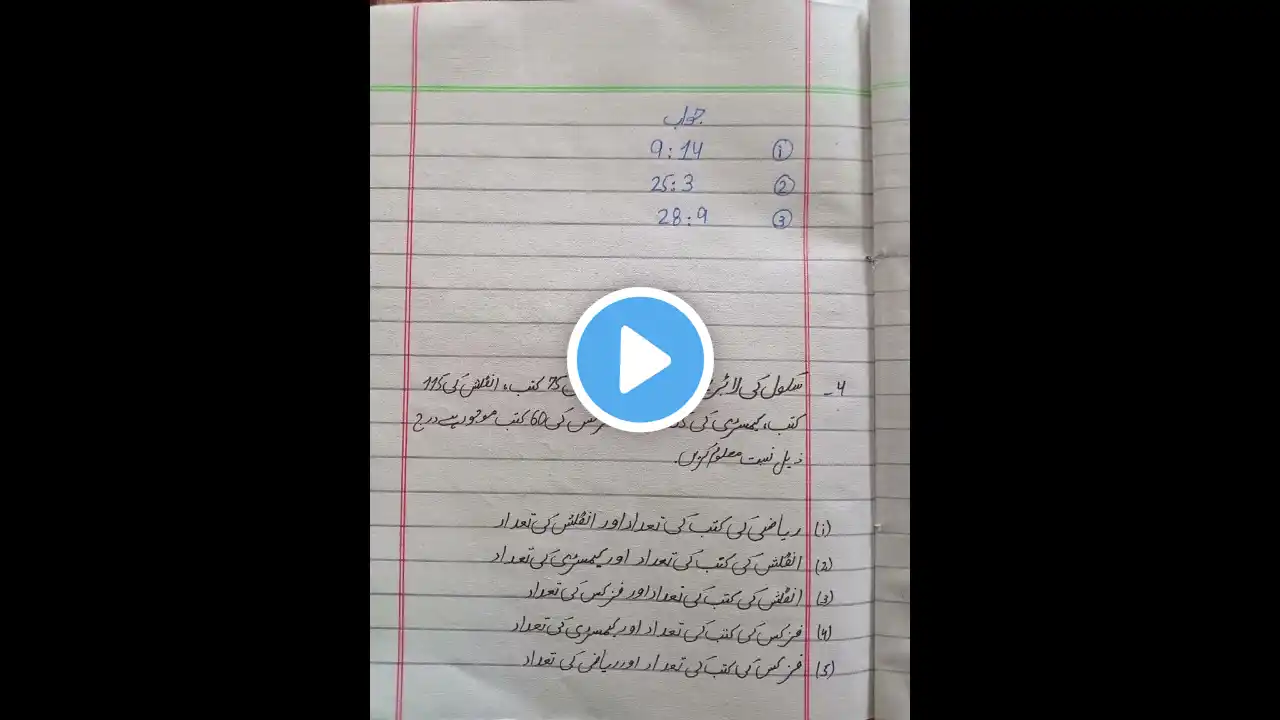 جواب
① 9:14
② 25:3
③ 28:9
4- سکول کی 75 کتب، انگلش کی 115
کتب، کیمسٹری کی کی 60 کتب موجود ہے درج
ذیل نسبت معلوم کریں.
(1) ریاضی کی کتب کی تعداد اور انگلش کی تعداد
(2) انگلش کی کتب کی تعداد اور کیمسٹری کی تعداد
(3) انگلش کی کتب کی تعداد اور فزکس کی تعداد
(4) فزکس کی کتب کی تعداد اور کیمسٹری کی تعداد
(5) فزکس کی کتب کی تعداد اور ریاضی کی تعداد